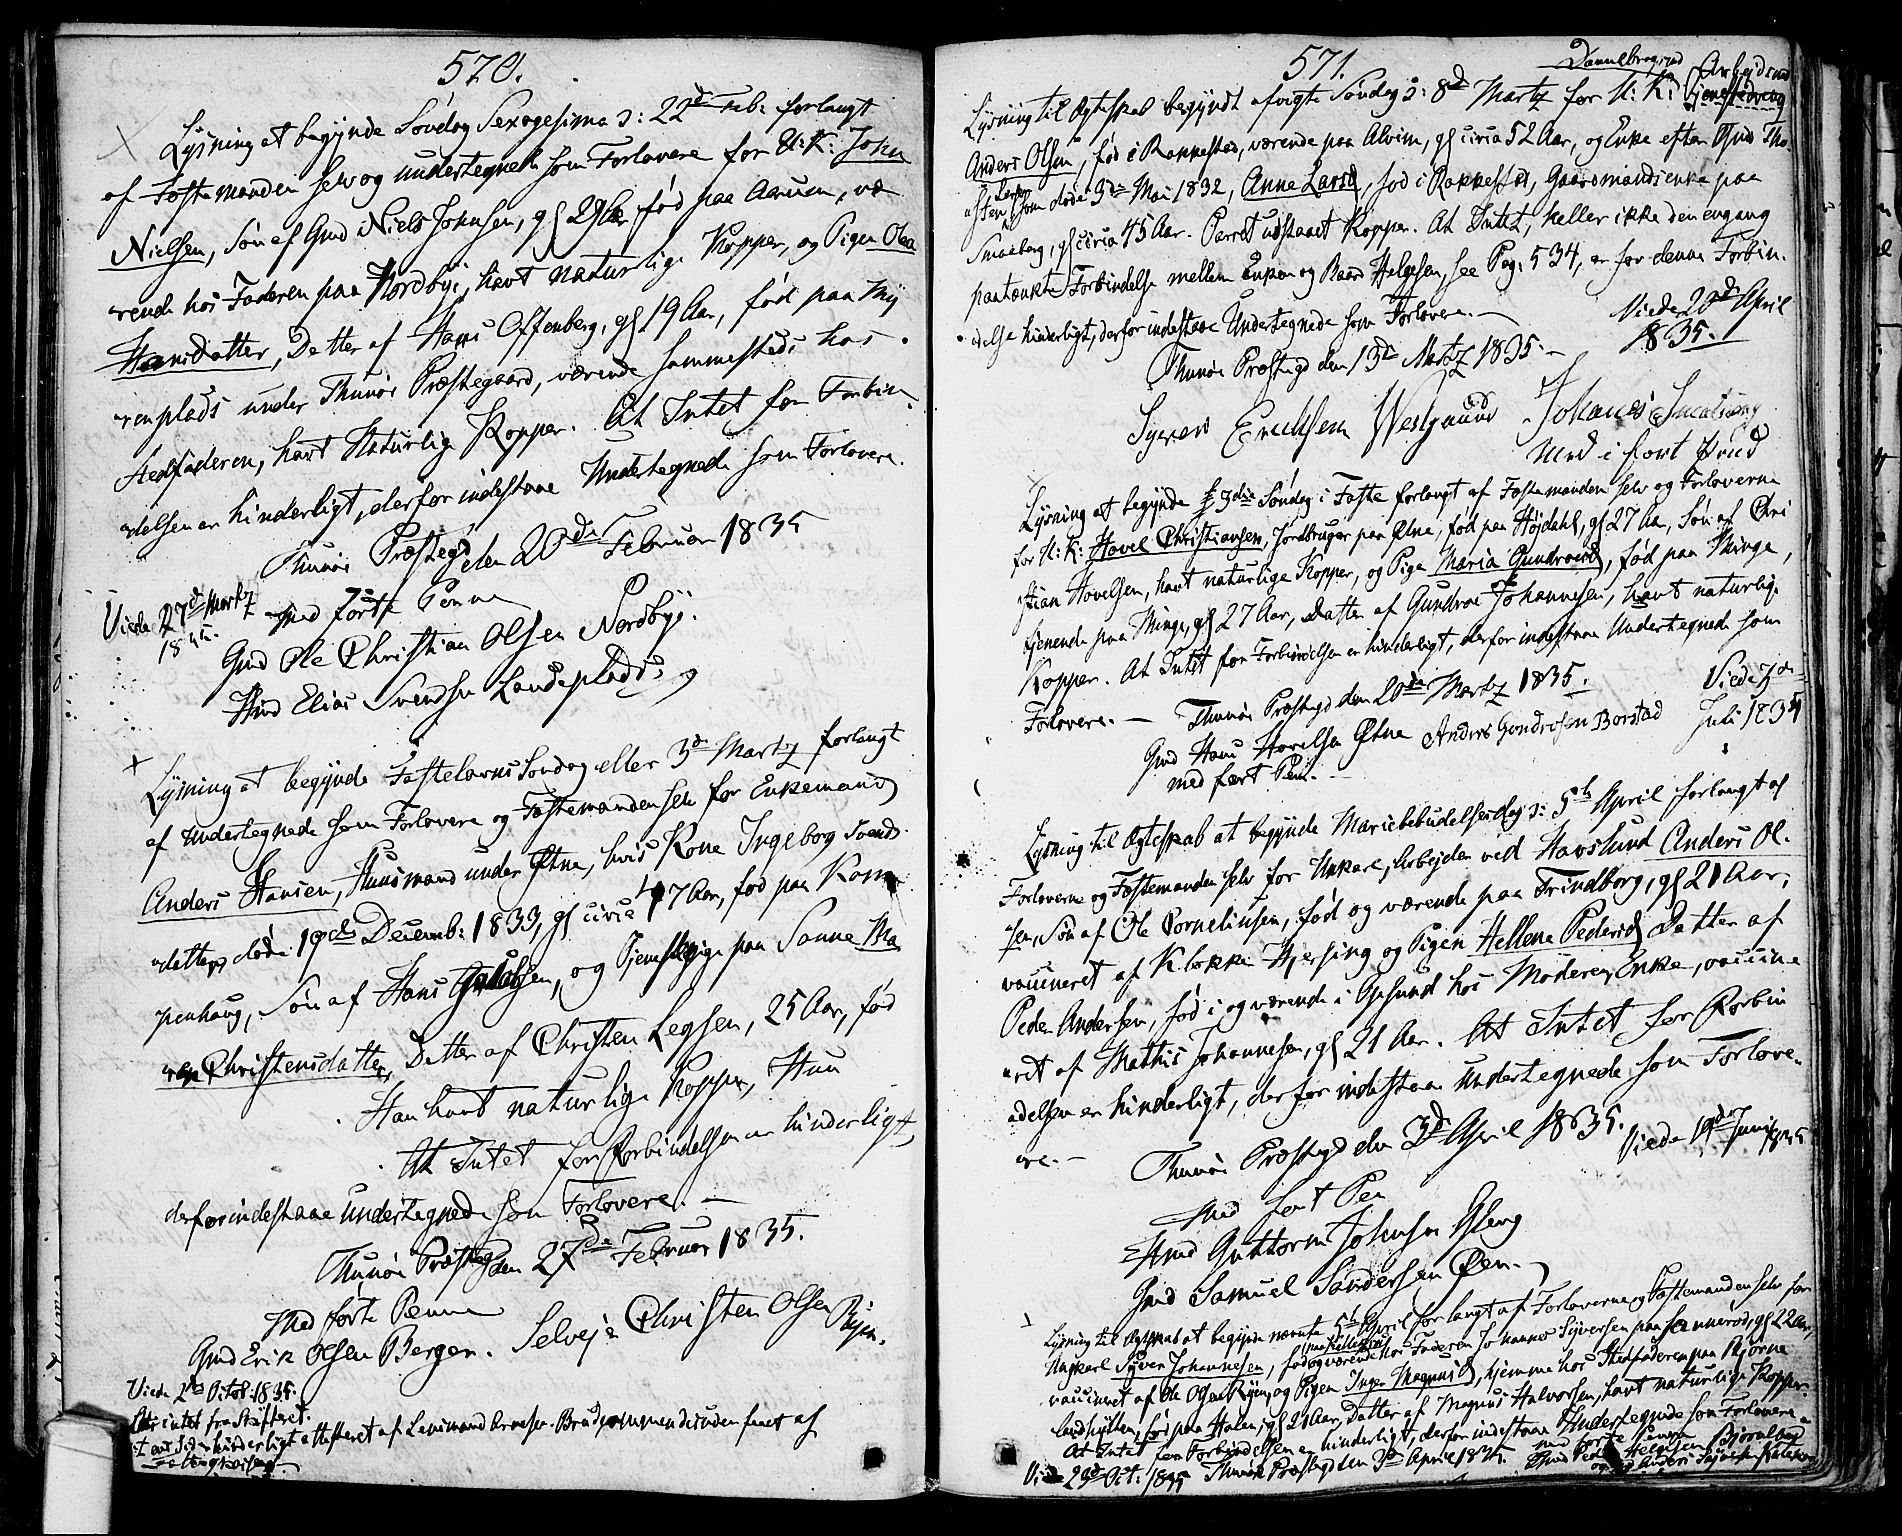 570.
Lysning at begynde Søndag Sexagesima ɔ: 22d Feb: forlangt
af Fæstemanden selv og undertegnede som Forlovere for U: K: John
Nielsen, Søn af Gmd Niels Johnsen, gl 29 Aar født paa Aarum, væ-
rende hos Faderen paa Nordbye, havt naturlige Kopper, og Pigen Olea
Hansdatter, Datter af Hans Offenberg, gl 19 Aar, født paa Ny
renplads under Thunøe Præstegaard, værende sammesteds hos
Stedfaderen, havt Naturlig Kopper. At Intet for Forbin-
delsen er hinderligt, derfor indestaae Undertegnede som Forlovere.
Thunøe Præstegd den 20de Februar 1835
Viede 27d Martz
1835.
med førte Penne
Gmd Ole Christian Olsen Nordbye.
Hmd Elias Svendsen Landeplads
Lysning at begynde Fastelavns Søndag eller 3d Martz forlangt
af undertegnede som Forlovere og Fæstemanden selv for Enkemand
Anders Hansen, Huusmand under Ætne, hvis Kone Ingeborg Svends-
datter døde 19de Decemb: 1833, gl circa 47 Aar, født paa Kam
penhaug, Søn af Hans, og Tjenestepige paa Sanne Ma
ren Christensdatter, Datter af Christen Legsen, 25 Aar, fød
Han havt naturlige Kopper, Hun
At Intet for Forbindelsen er hinderligt,
derfor indestaae undertegnede som Forlovere.
Thunøe Præstegd den 27de Februar 1835.
Med førte Penne
Gmd Erik Olsen Bergen. Selveje Christen Olsen Ryen.
Viede 2d Octob: 1835.
intet fra Skifteret.
hinderligt attesteret af Lensmand
571.
Dannebrogsmd Arbejdsmd
Lysning til Ægteskab begyndt afvigte Søndag ɔ: 8d Martz for U: K:
Anders Olsen, fød i Rakkestad, værende paa Alvim, gl circa 52 Aar, og Enke efter Gmd Tho-
som døde 3d Mai 1832, Anne Larsd, fød i Rakkestad, Gaardmandsenke paa
Smaaberg, gl circa 45 Aar. Parret udstaaet Kopper. At Intet, heller ikke den engang
paatænkte Forbindelse mellem Enken og Baard Helgesen, see Pag: 534, er for denne Forbin-
delse hinderligt, derfor indestaae Undertegnede som Forlovere.
Viede 20d April
1835.
Thunøe Præstegd den 13de Martz 1835.
Syver Erichsen Westgaard Johanes Smaaberg
med i ført Pend
Lysning at begynde 3die Søndag i Faste forlangt af Fæstemanden selv og Forloverne
for U: K: Hovel Christiansen, Jordbruger paa Ætne, fød paa Højdahl, gl 27 Aar, Søn af Chri
stian Hovelsen, havt naturlige Kopper, og Pige Maria Gundroesd, fød paa Minge,
tjenende paa Minge, gl 27 Aar, Datter af Gundroe Johannesen, havt naturlige
Kopper. At Intet for Forbindelsen er hinderligt, derfor indestaae Undertegnede som
Forlovere. Thunøe Præstegd den 20de Martz 1835.
Viede 3de
Juli 1835
Gmd Hans Hovelsen Ætne Anders Gundrosen Borstad
med ført Pen.
Lysning til Ægteskab at begynde Mariebebudelsesdag ɔ: 5te April forlangt af
Forloverne og Fæstemanden selv for Unkarl, Arbejder ved Hafslund Anders Ol-
sen, Søn af Ole Corneliusen, fød og værende paa Trindborg, gl 21 Aar,
vaccineret af Klokker Hjersing og Pigen Hellene Pedersd Datter af
Peder Andersen, fød i og værende i Ogsund hos Moderen, Enke, vaccine
ret af Mathis Johannesen, gl 21 Aar. At Intet for Forbin
delsen er hinderligt, derfor indestaae undertegnede som Forlove-
re.
Thunøe Præstegd den 3d April 1835.
Viede 19de Juni 1835
Med ført Pen
Hmd Guttorm Johnsen Oberg
Gmd Samuel Sandersen Øen.
Lysning til Ægteskab at begynde nævnte 5te April forlangt af Forloverne og Fæstemanden selv for
Ungkarl Syver Johannesen, fød og værende hos Faderen Johannes Syversen paa Sannerød, gl 22 Aar,
vaccineret af Ole Olsen Ryen, og Pigen Inge Magnusd, hjemme hos Stedfaderen paa Bjørne
fød paa Halen, gl 21 Aar, Datter af Magnus Halvorsen, havt naturlige Kopper.
At Intet for Forbindelsen er hinderligt, derfor indestaae Undertegnede som Forlovere.
Viede 23d Oct: 1835 Thunøe Præstegd den 3d April 1835. med førte Penne